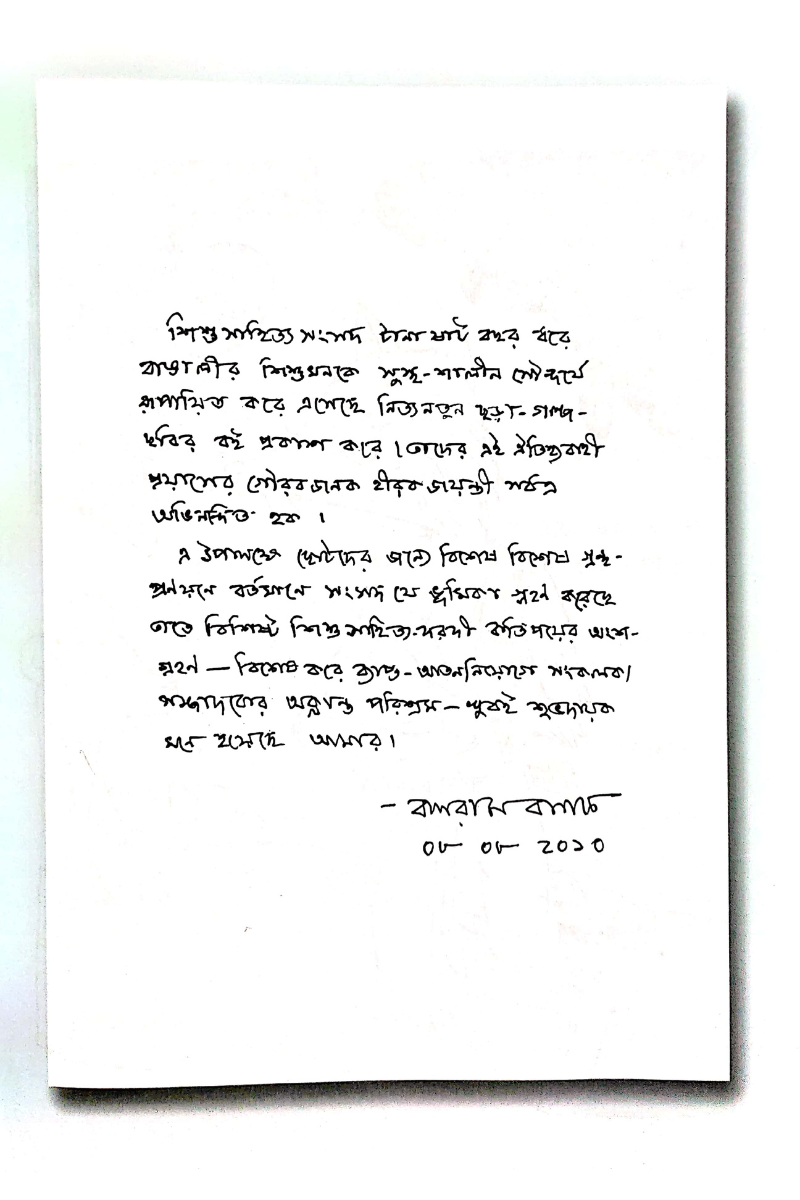 শিশু সাহিত্য সংসদ টানা ষাট বছর ধরে
বাঙালীর শিশুমনকে সুস্থ-শালীন সৌন্দর্যে
রূপায়িত করে এসেছে নিত্যনতুন ছড়া-গল্প-
ছবির বই প্রকাশ করে। তাদের এই ঐতিহ্যবাহী
প্রয়াসের গৌরবজনক হীরকজয়ন্তী সর্বত্র
অভিনন্দিত হক।
এ উপলক্ষে ছোটদের জন্যে বিশেষ বিশেষ গ্রন্থ-
প্রণয়নে বর্তমানে সংসদ যে ভূমিকা গ্রহণ করেছে
তাতে বিশিষ্ট শিশুসাহিত্য-দরদী কতিপয়ের অংশ-
গ্রহণ — বিশেষ করে ব্যাপ্ত-আত্মনিয়োগে সংকলক/
সম্পাদকের অক্লান্ত পরিশ্রম – খুবই শুভদায়ক
মনে হয়েছে আমার।
– বলরাম বসাক
০৮ ০৮ ২০১০